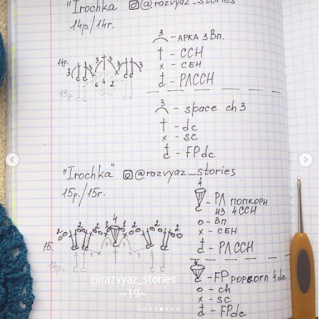 "Irochka" @razvyaz_stories
14р/14r.
3 - АРКА 3 Вп.
14р.
3 3 3 3
- ССН
х - СБН
- РЛССН
3 - space ch3
- dc
х - sc
- FPdc
"Irochka" @razvyaz_stories
15р./15r.
4 - РЛ ПОПКОРН
ИЗ 4 ССН
о - ВП
х - СБН
- РЛССН
15р.
2 2 2 2 4 2 2 2 2
4 - FP popcorn 4dc
о - ch
х - sc
- FPdc
@razvyaz_stories
-19-